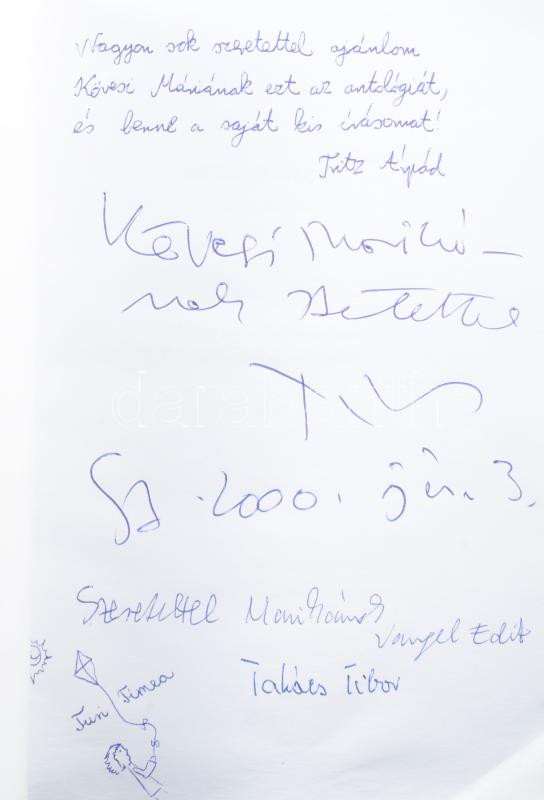 Nagyon sok szeretettel ajánlom
Kövesi Máriának ezt az antológiát,
és benne a saját kis írásomat!
Fritz Árpád
Kövesi Marikó-
nak szeretettel
darabanth
2000. jún. 3.
Szeretettel Marikának
Vangel Edit
Takács Tibor
Turi Timea